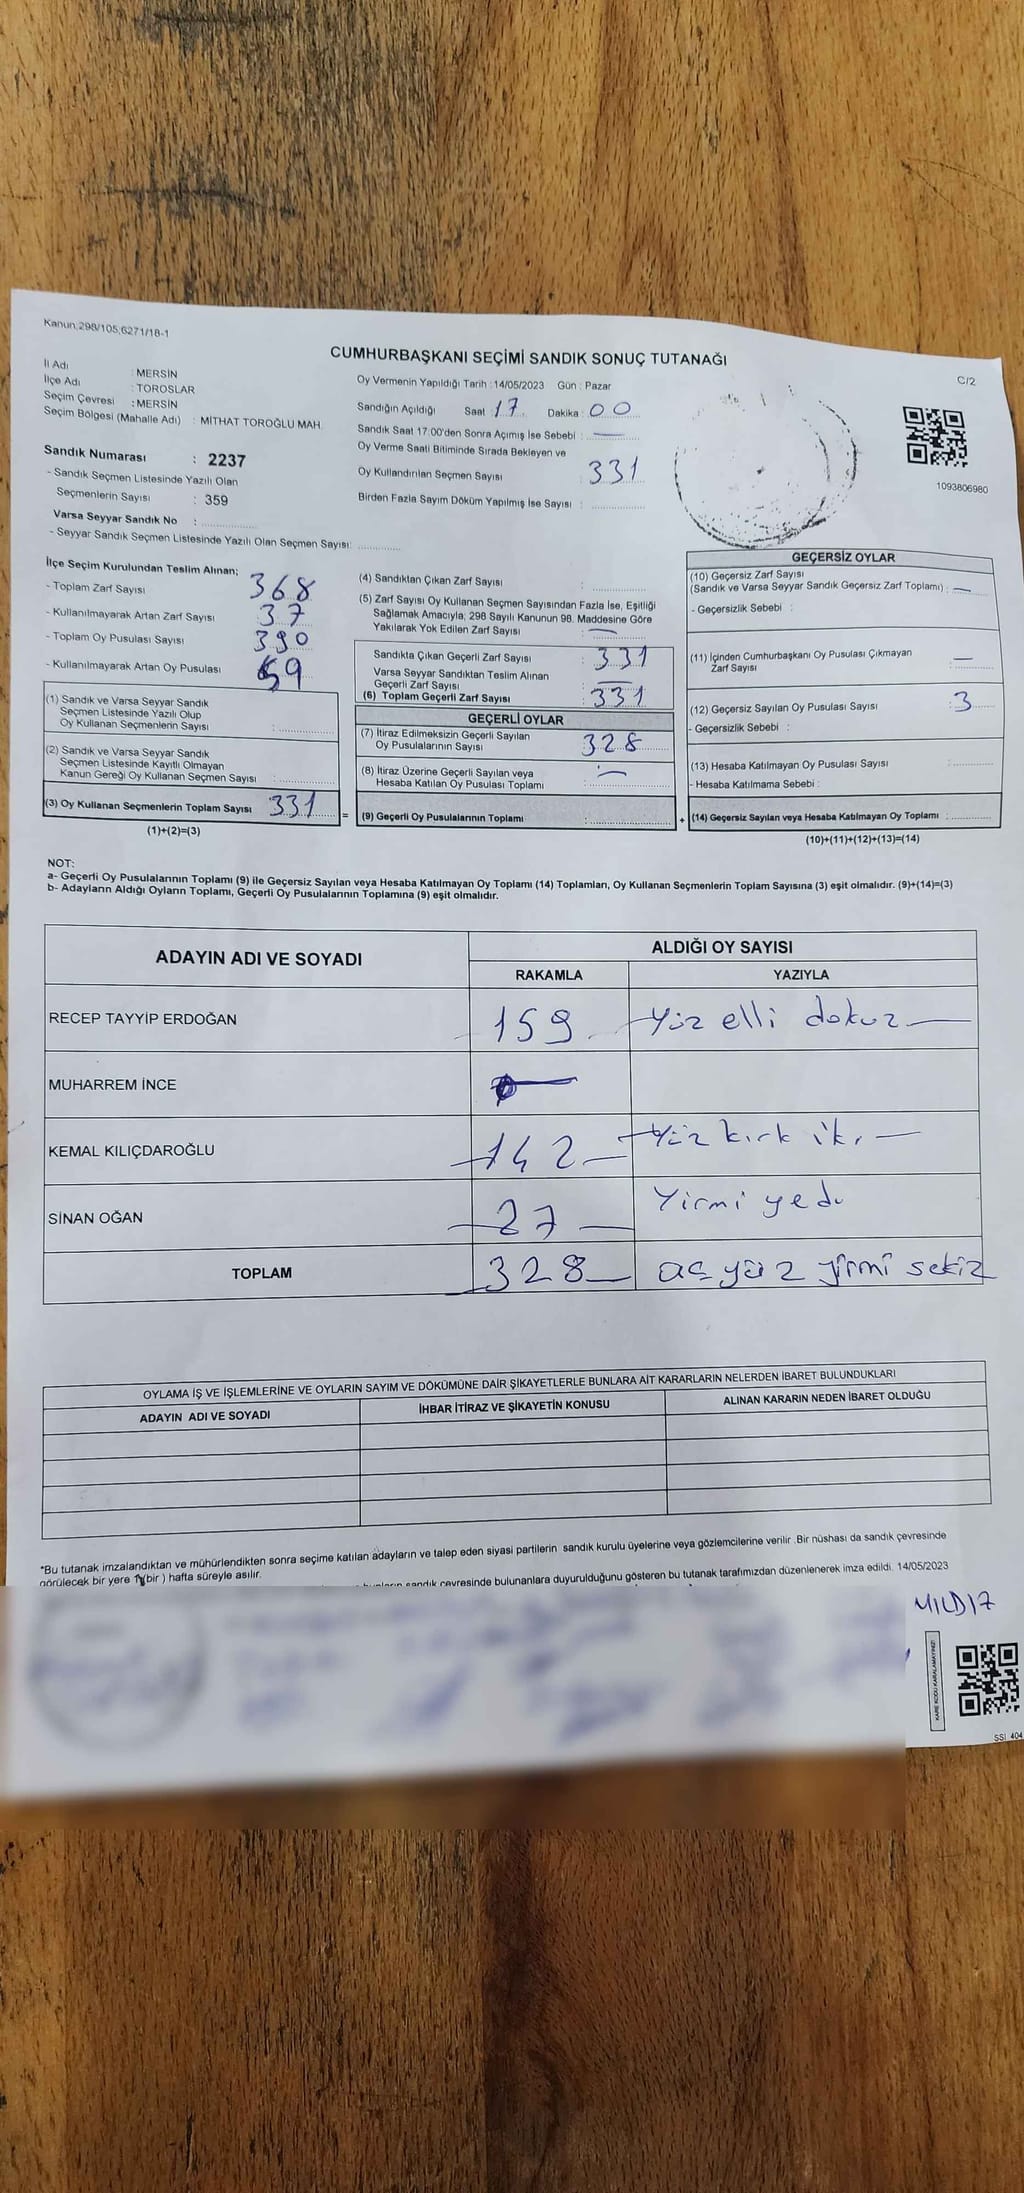 Kanun,298/105,6271/18-1
CUMHURBAŞKANI SEÇİMİ SANDIK SONUÇ TUTANAĞI
C/2
İl Adı : MERSİN
İlçe Adı : TOROSLAR
Seçim Çevresi : MERSİN
Seçim Bölgesi (Mahalle Adı) : MİTHAT TOROĞLU MAH.
Sandık Numarası : 2237
- Sandık Seçmen Listesinde Yazılı Olan
Seçmenlerin Sayısı : 359
Varsa Seyyar Sandık No :
- Seyyar Sandık Seçmen Listesinde Yazılı Olan Seçmen Sayısı:
Oy Vermenin Yapıldığı Tarih : 14/05/2023 Gün : Pazar
Sandığın Açıldığı Saat : 17 Dakika : 00
Sandık Saat 17:00'den Sonra Açımış İse Sebebi : —
Oy Verme Saati Bitiminde Sırada Bekleyen ve
Oy Kullandırılan Seçmen Sayısı : 331
Birden Fazla Sayım Döküm Yapılmış İse Sayısı :
1093806980
İlçe Seçim Kurulundan Teslim Alınan;
- Toplam Zarf Sayısı 368
- Kullanılmayarak Artan Zarf Sayısı 37
- Toplam Oy Pusulası Sayısı 390
- Kullanılmayarak Artan Oy Pusulası 59
(1) Sandık ve Varsa Seyyar Sandık
Seçmen Listesinde Yazılı Olup
Oy Kullanan Seçmenlerin Sayısı :
(2) Sandık ve Varsa Seyyar Sandık
Seçmen Listesinde Kayıtlı Olmayan
Kanun Gereği Oy Kullanan Seçmen Sayısı :
(3) Oy Kullanan Seçmenlerin Toplam Sayısı 331
(1)+(2)=(3)
=
(4) Sandıktan Çıkan Zarf Sayısı :
(5) Zarf Sayısı Oy Kullanan Seçmen Sayısından Fazla İse, Eşitliği
Sağlamak Amacıyla, 298 Sayılı Kanunun 98. Maddesine Göre
Yakılarak Yok Edilen Zarf Sayısı : —
Sandıkta Çıkan Geçerli Zarf Sayısı : 331
Varsa Seyyar Sandıktan Teslim Alınan
Geçerli Zarf Sayısı : —
(6) Toplam Geçerli Zarf Sayısı : 331
GEÇERLİ OYLAR
(7) İtiraz Edilmeksizin Geçerli Sayılan
Oy Pusulalarının Sayısı : 328
(8) İtiraz Üzerine Geçerli Sayılan veya
Hesaba Katılan Oy Pusulası Toplamı : —
(9) Geçerli Oy Pusulalarının Toplamı :
+
GEÇERSİZ OYLAR
(10) Geçersiz Zarf Sayısı
(Sandık ve Varsa Seyyar Sandık Geçersiz Zarf Toplamı) : —
- Geçersizlik Sebebi :
(11) İçinden Cumhurbaşkanı Oy Pusulası Çıkmayan
Zarf Sayısı : —
(12) Geçersiz Sayılan Oy Pusulası Sayısı : 3
- Geçersizlik Sebebi :
(13) Hesaba Katılmayan Oy Pusulası Sayısı :
- Hesaba Katılmama Sebebi :
(14) Geçersiz Sayılan veya Hesaba Katılmayan Oy Toplamı :
(10)+(11)+(12)+(13)=(14)
NOT:
a- Geçerli Oy Pusulalarının Toplamı (9) ile Geçersiz Sayılan veya Hesaba Katılmayan Oy Toplamı (14) Toplamları, Oy Kullanan Seçmenlerin Toplam Sayısına (3) eşit olmalıdır. (9)+(14)=(3)
b- Adayların Aldığı Oyların Toplamı, Geçerli Oy Pusulalarının Toplamına (9) eşit olmalıdır.
ADAYIN ADI VE SOYADI
ALDIĞI OY SAYISI
RAKAMLA YAZIYLA
RECEP TAYYİP ERDOĞAN 159 Yüz elli dokuz
MUHARREM İNCE —
KEMAL KILIÇDAROĞLU 142 Yüz kırk iki
SİNAN OĞAN 27 Yirmi yedi
TOPLAM 328 üç yüz yirmi sekiz
OYLAMA İŞ VE İŞLEMLERİNE VE OYLARIN SAYIM VE DÖKÜMÜNE DAİR ŞİKAYETLERLE BUNLARA AİT KARARLARIN NELERDEN İBARET BULUNDUKLARI
ADAYIN ADI VE SOYADI İHBAR İTİRAZ VE ŞİKAYETİN KONUSU ALINAN KARARIN NEDEN İBARET OLDUĞU
*Bu tutanak imzalandıktan ve mühürlendikten sonra seçime katılan adayların ve talep eden siyasi partilerin sandık kurulu üyelerine veya gözlemcilerine verilir. Bir nüshası da sandık çevresinde
görülecek bir yere 1 (bir ) hafta süreyle asılır.
sandık çevresinde bulunanlara duyurulduğunu gösteren bu tutanak tarafımızdan düzenlenerek imza edildi. 14/05/2023
KARE KODU KARALAMAYINIZ!
SSİ 404